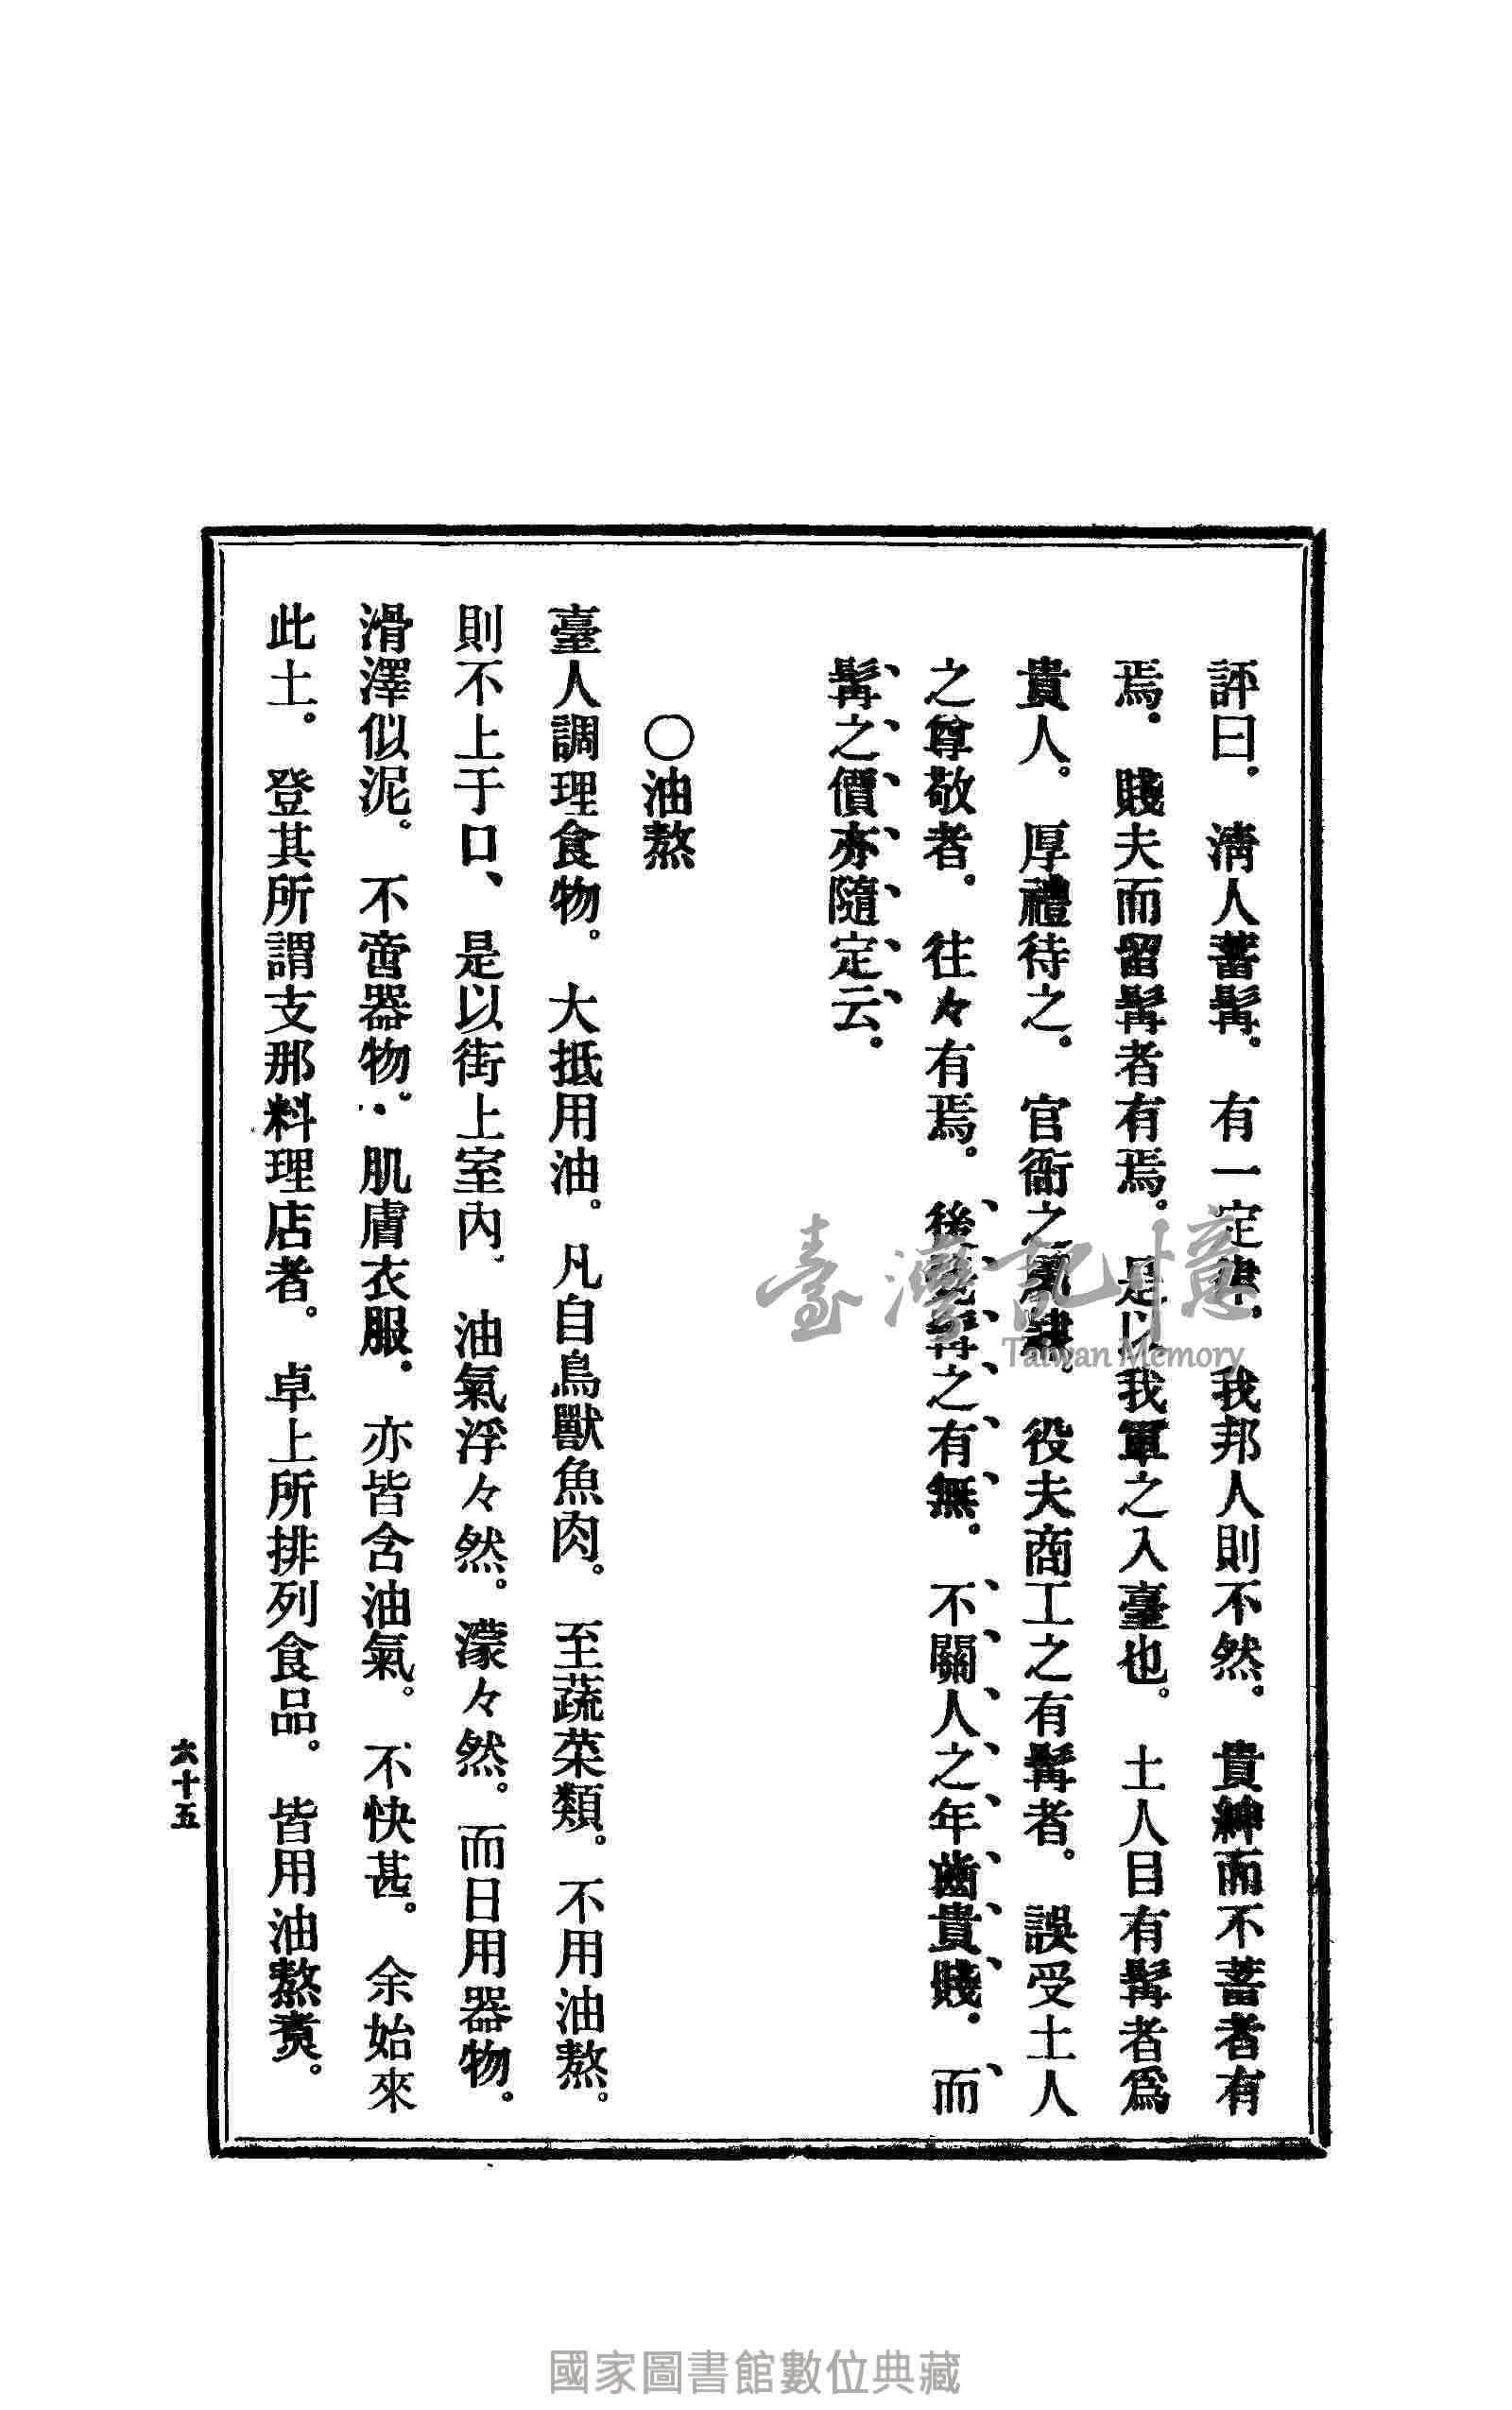 評曰。淸人蓄髯。有一定律。我邦人則不然。貴紳而不蓄者有
焉。賤夫而留髯者有焉。是以我軍之入臺也。土人目有髯者爲
貴人。厚禮待之。官衙之屬隷。役夫商工之有髯者。誤受土人
之尊敬者。往々有焉。後髯之有無。不關人之年齒貴賤。而
髯之價亦隨定云。
〇油熬
臺人調理食物。大抵用油。凡自鳥獸魚肉。至蔬菜類。不用油熬。
則不上于口、是以街上室內、油氣浮々然。濛々然。而日用器物。
滑澤似泥。不啻器物。肌膚衣服。亦皆含油氣。不快甚。余始來
此土。登其所謂支那料理店者。卓上所排列食品。皆用油熬煑。
六十五
臺灣記憶
Taiwan Memory
國家圖書館數位典藏